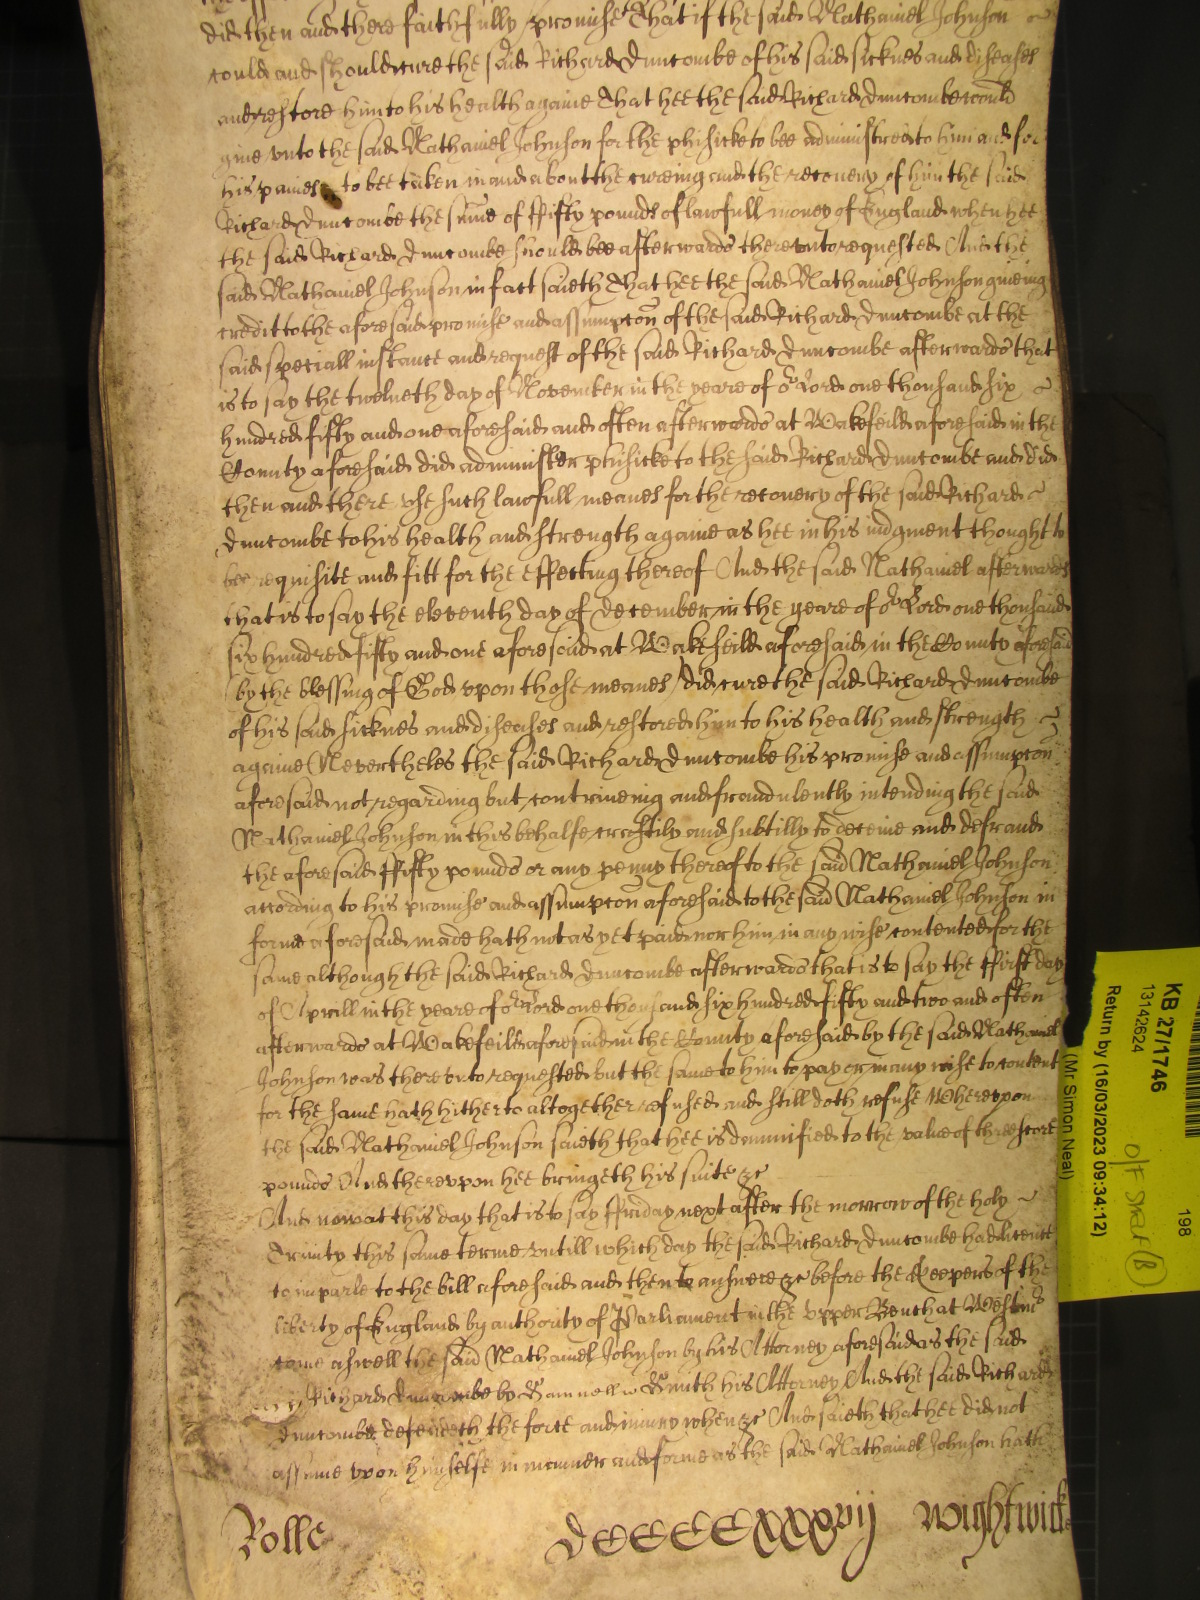 did then and there faithfully promise That if the said Nathaniel Johnson
could and should cure the said Richard Duncombe of his said sicknes and diseases
and restore him to his health againe That hee the said Richard Duncombe would
give unto the said Nathaniel Johnson for the phisicke to bee administred to him and for
his paines to bee taken in and about the cureing and the recovery of him the said
Richard Duncombe the sume of ffifty pounds of lawfull money of England when hee
the said Richard Duncombe should bee afterwards thereunto requested And the
said Nathaniel Johnson in fact saieth That hee the said Nathaniel Johnson giveing
credit to the aforesaid promise and assumpcon of the said Richard Duncombe at the
said speciall instance and request of the said Richard Duncombe afterwards that
is to say the twelveth day of November in the yeare of or Lord one thousand six
hundred fifty and one aforesaid and often afterwards at Wakefeild aforesaid in the
County aforesaid did administer phisicke to the said Richard Duncombe and did
then and there use such lawfull meanes for the recovery of the said Richard
Duncombe to his health and strength againe as hee in his iudgment thought to
bee requisite and fitt for the effecting thereof And the said Nathaniel afterwards
that is to say the eleventh day of December in the yeare of or Lord one thousand
six hundred fifty and one aforesaid at Wakefeild aforesaid in the County aforesaid
by the blessing of God upon those meanes did cure the said Richard Duncombe
of his said sicknes and diseases and restored him to his health and strength
againe Neverthelesse the said Richard Duncombe his promise and assumpcon
aforesaid not regarding but contriveing and fraudulently intending the said
Nathaniel Johnson in this behalfe craftily and subtilly to deceive and defraud
the aforesaid ffifty pounds or any penny thereof to the said Nathaniel Johnson
according to his promise and assumpcon aforesaid to the said Nathaniel Johnson in
forme aforesaid made hath not as yet paid nor him in any wise contented for the
same although the said Richard Duncombe afterwards that is to say the ffirst day
of Aprill in the yeare of or Lord one thousand six hundred fifty and two and often
afterwards at Wakefeild aforesaid in the County aforesaid by the said Nathaniel
Johnson was thereunto requested but the same to him to pay or in any wise to content
for the same hath hitherto altogether refused and still doth refuse Whereupon
the said Nathaniel Johnson saieth that hee is damnified to the value of threescore
pounds And thereupon hee bringeth his suite &c
And now at this day that is to say ffriday next after the morrow of the holy
Trinity this same terme untill which day the said Richard Duncombe had licence
to imparle to the bill aforesaid and then to answere &c before the Keepers of the
liberty of England by authority of Parliament in the upper Bench at Westmr
come aswell the said Nathaniel Johnson by his Attorney aforesaid as the said
Richard Duncombe by Smith his Attorney And the said Richard
Duncombe defendeth the force and iniury when &c And saieth that hee did not
assume upon himselfe in manner and forme as the said Nathaniel Johnson hath
Rolle DCCCCXXXVij Wightwick
KB 27/1746
13142624
Return by (16/03/2023 09:34:12)
(Mr Simon Neal)
198